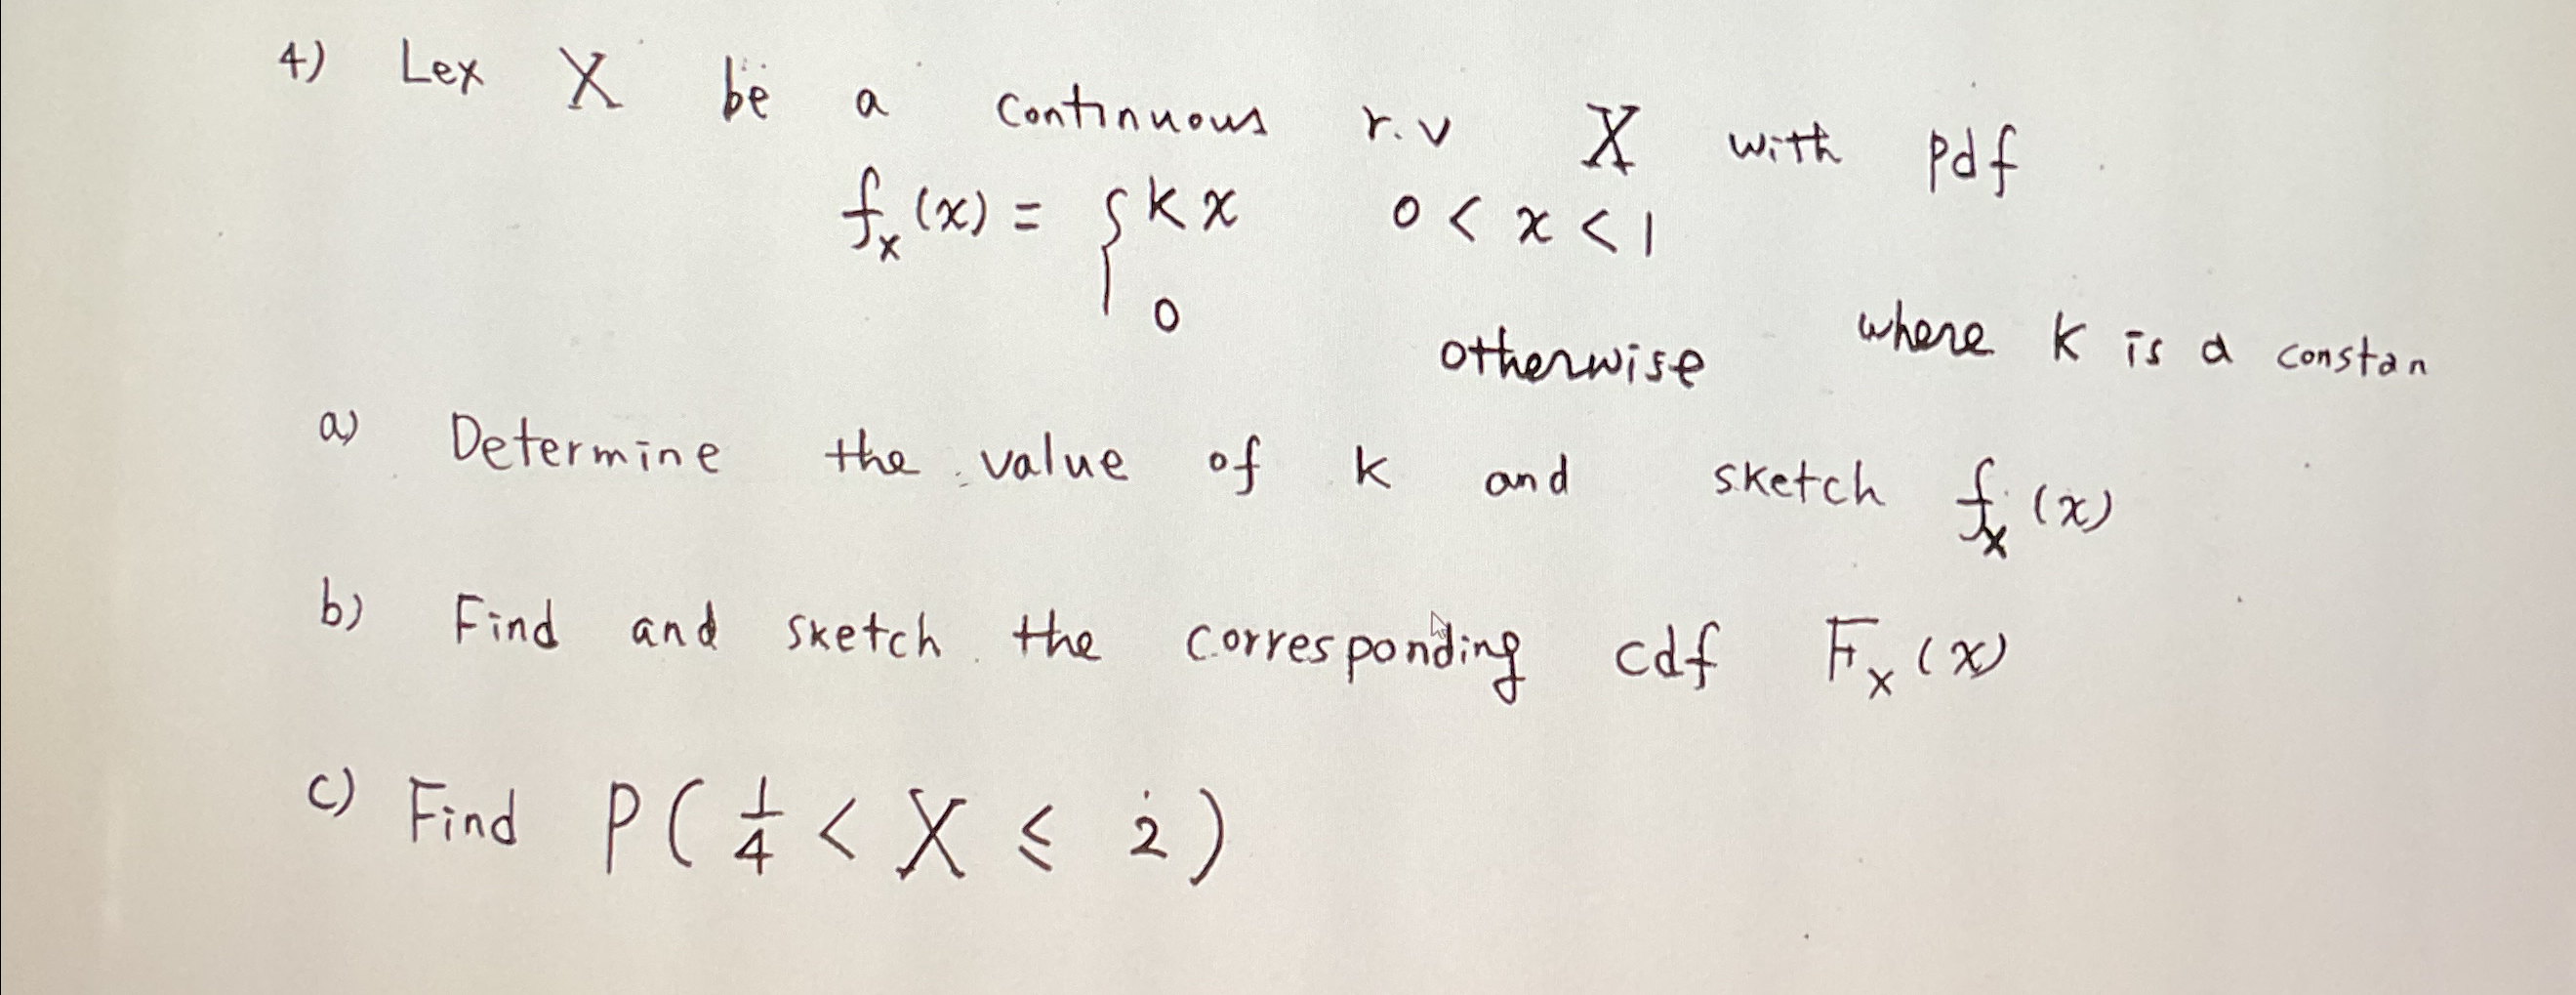 4) Lex X be a continuous r.v X with pdf
f_X(x) = { kx 0 < x < 1
0 otherwise where k is a constan
a) Determine the value of k and sketch f_X(x)
b) Find and sketch the corresponding cdf F_X(x)
c) Find P(1/4 < X ≤ 2)